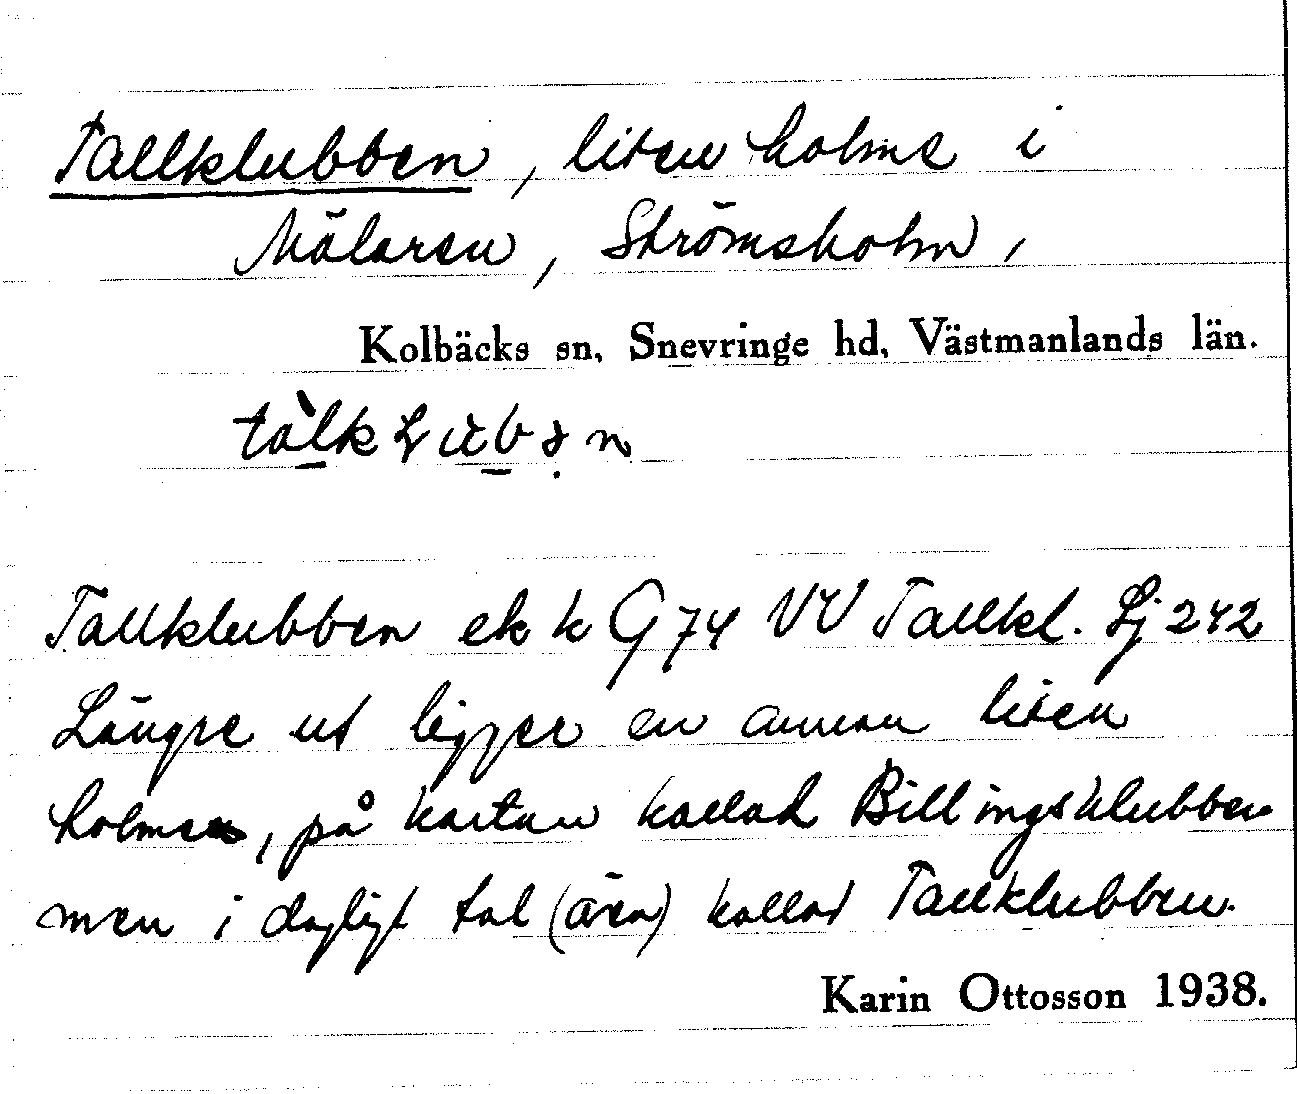 Tallklubben, liten holme i
Mälaren, Strömsholm,
Kolbäcks sn, Snevringe hd, Västmanlands län.
Tallklubben ek k G 74 VV Tallkl. Lj 242
Längre ut ligger en annan liten
holme, på kartan kallad Billingsklubben
men i dagligt tal (även) kallad Tallklubben.
Karin Ottosson 1938.